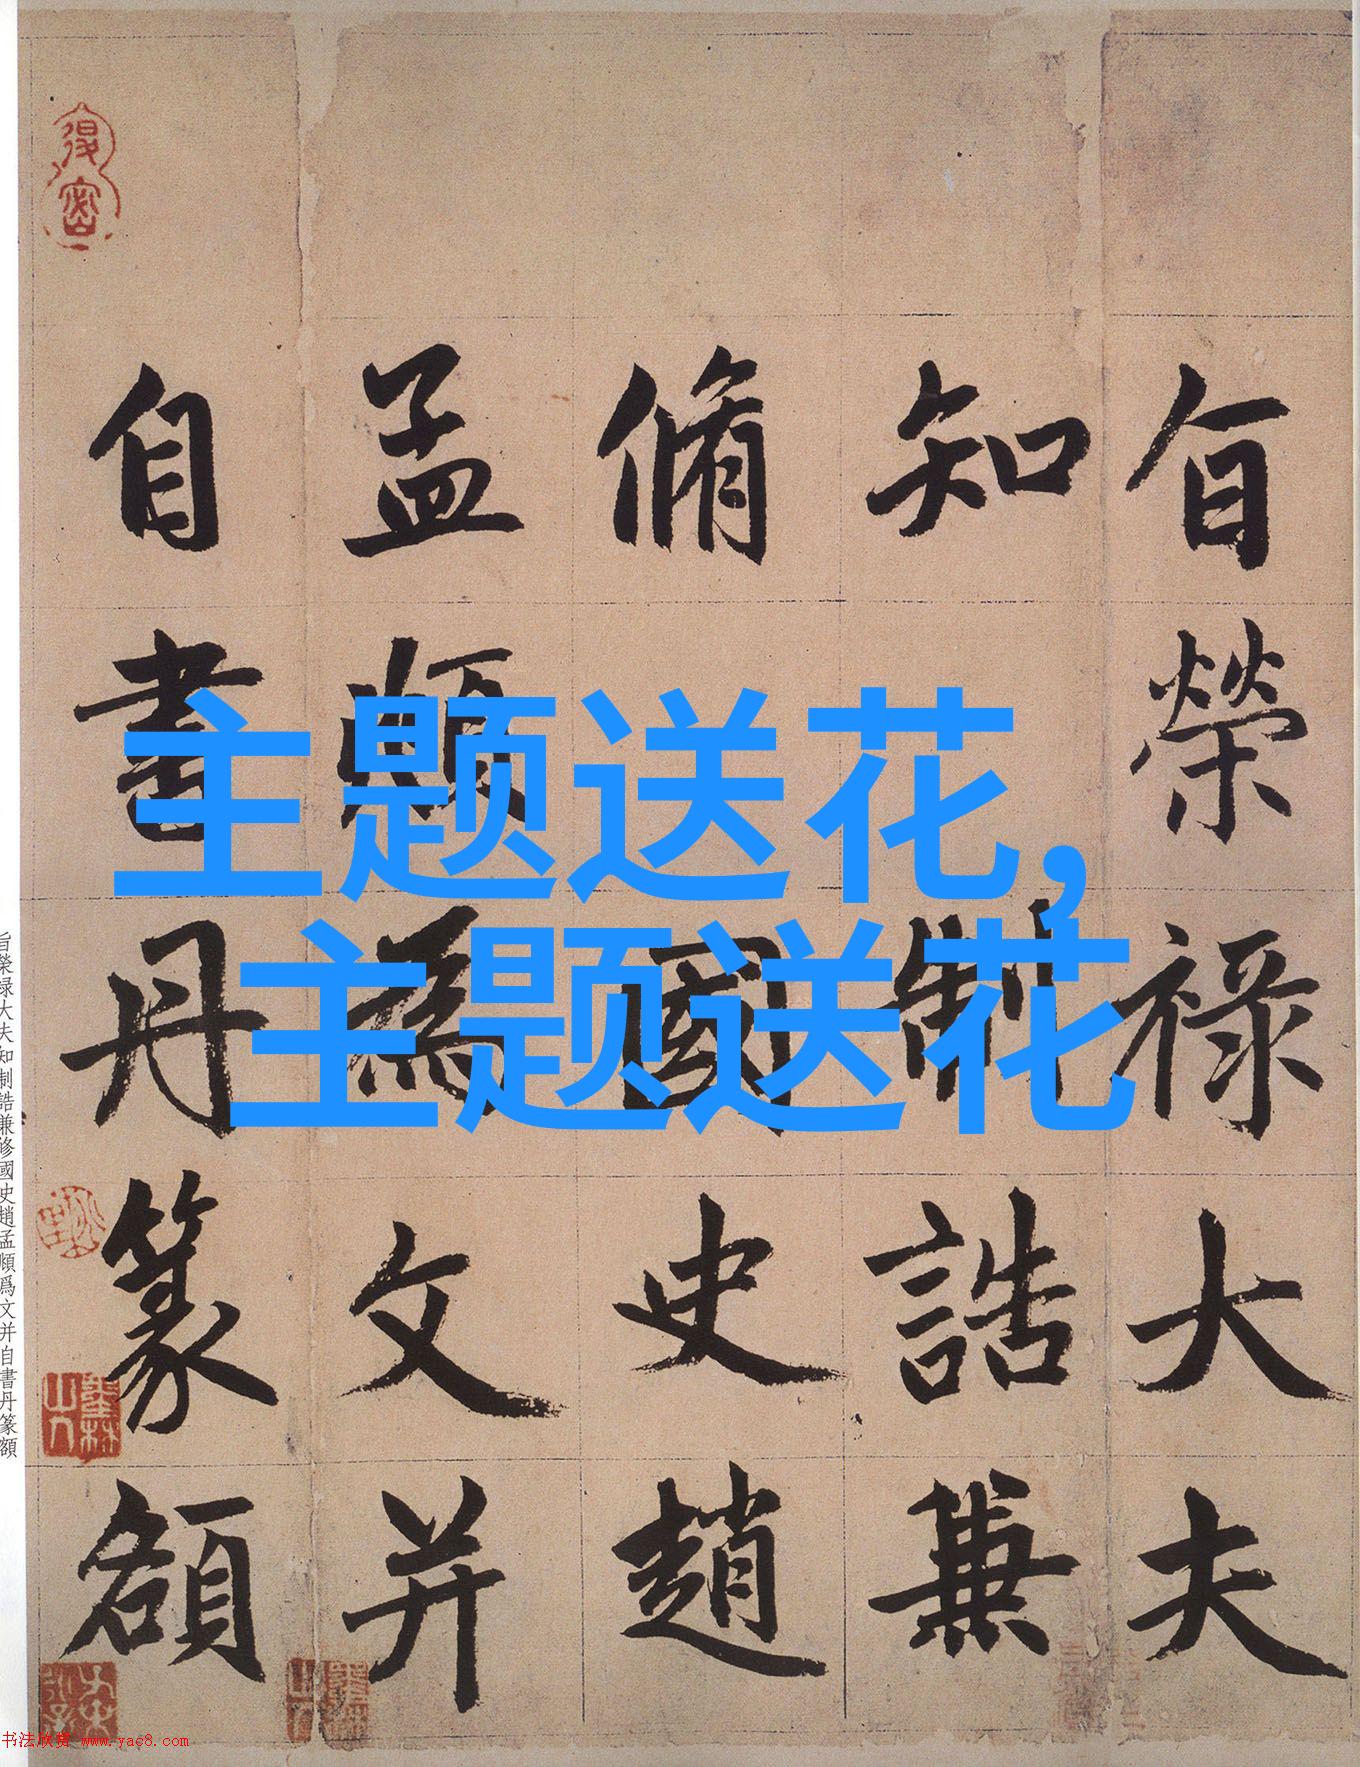 旨榮禄大夫
知制誥兼
脩國史趙
孟頫為文并
自書丹篆額
主题送花，
主题送花
旨榮禄大夫知制誥兼修國史趙孟頫爲文并自書丹篆額
书法欣赏 www.yac8.com